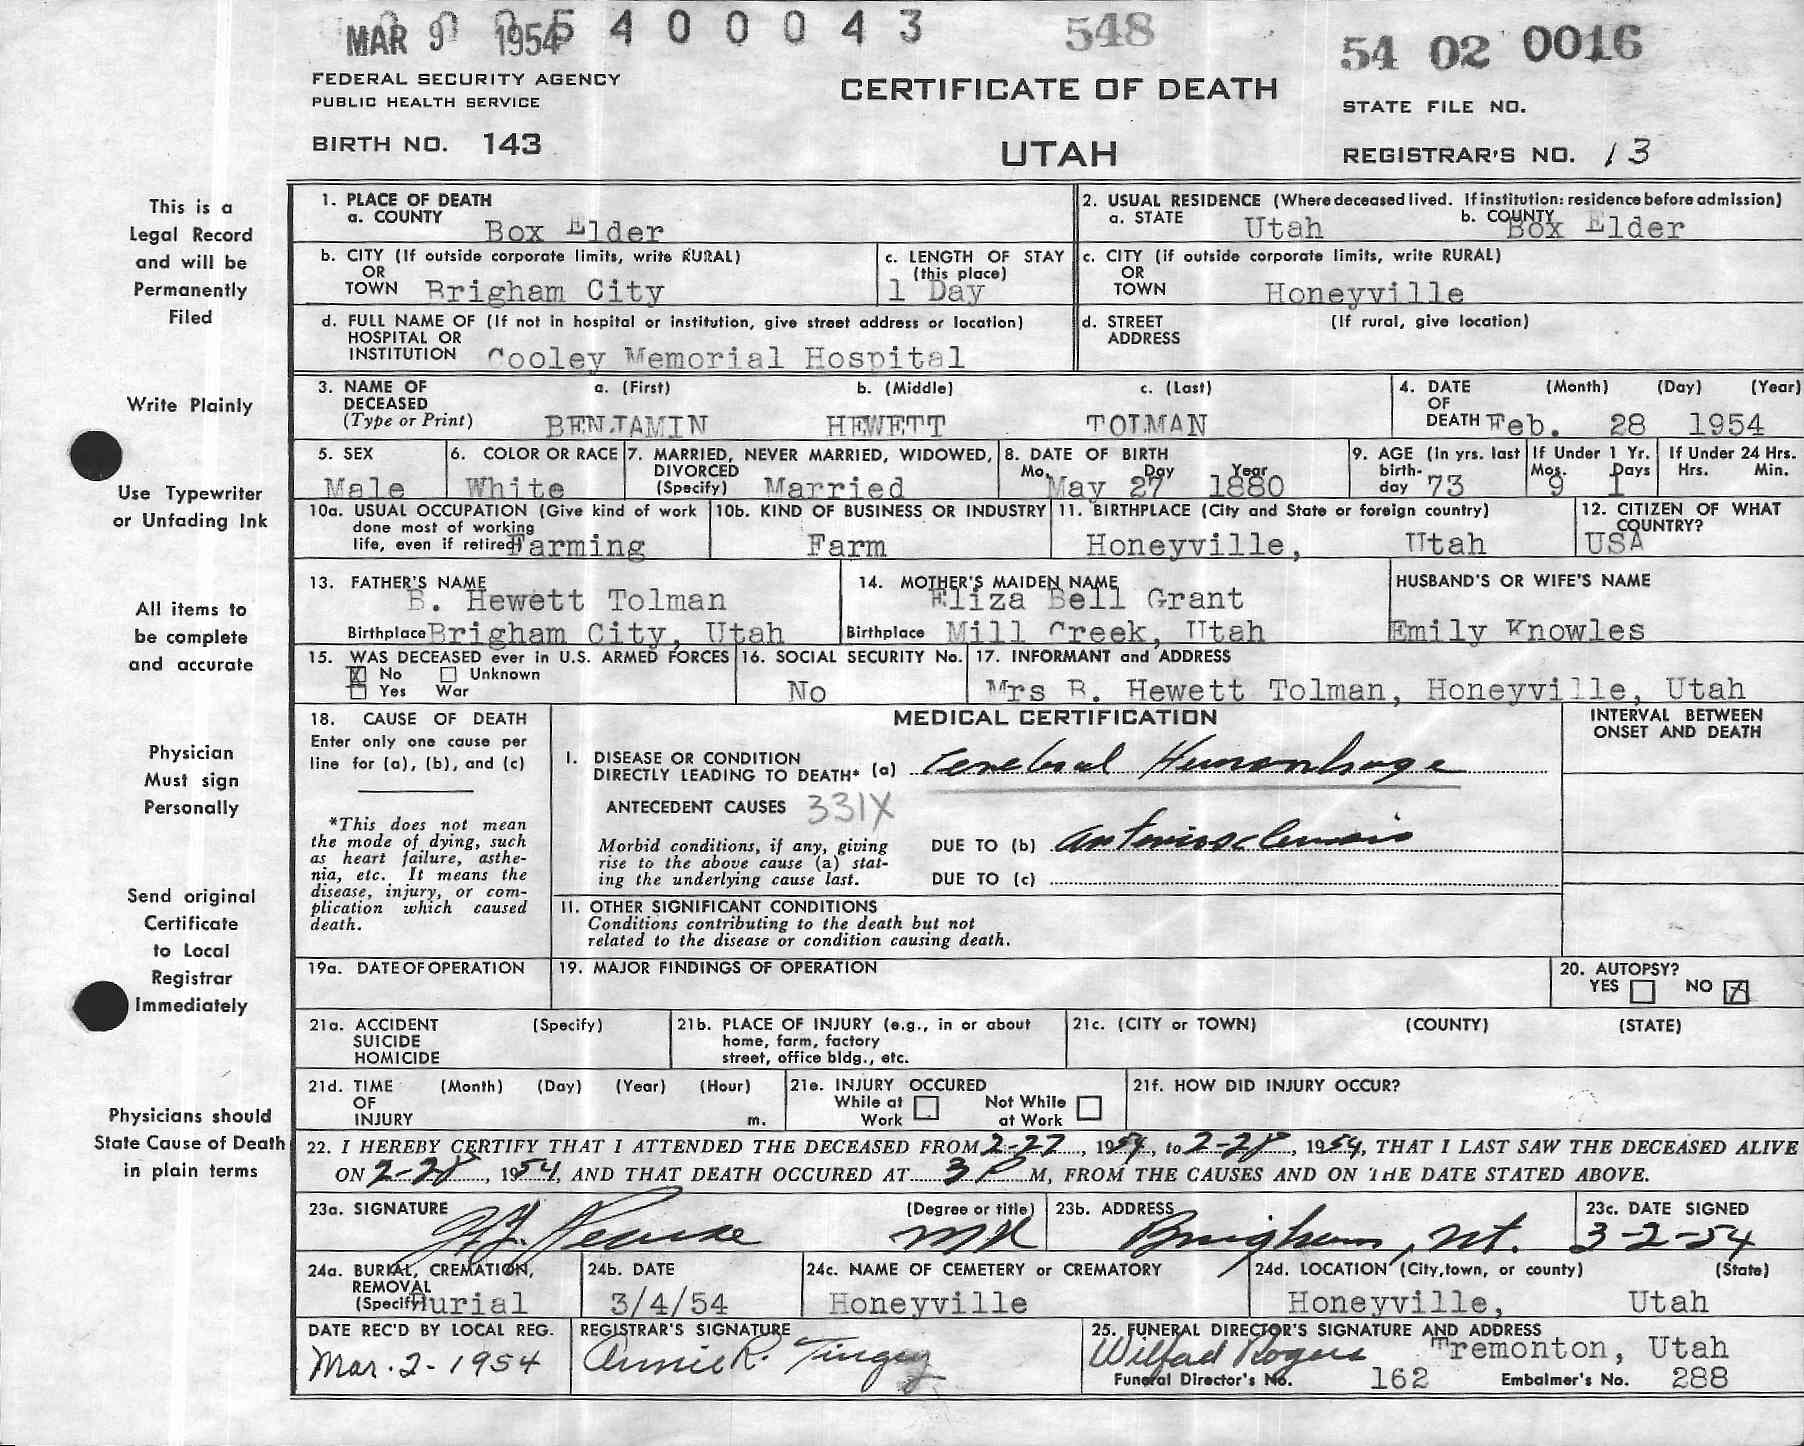 MAR 9 1954 5 4 0 0 0 4 3 548 54 02 0016
FEDERAL SECURITY AGENCY
PUBLIC HEALTH SERVICE
CERTIFICATE OF DEATH
STATE FILE NO.
BIRTH NO. 143
UTAH
REGISTRAR'S NO. 13
This is a
Legal Record
and will be
Permanently
Filed
Write Plainly
Use Typewriter
or Unfading Ink
All items to
be complete
and accurate
Physician
Must sign
Personally
Send original
Certificate
to Local
Registrar
Immediately
Physicians should
State Cause of Death
in plain terms
1. PLACE OF DEATH
a. COUNTY Box Elder
2. USUAL RESIDENCE (Where deceased lived. If institution: residence before admission)
a. STATE Utah b. COUNTY Box Elder
b. CITY (If outside corporate limits, write RURAL)
OR
TOWN Brigham City
c. LENGTH OF STAY
(this place)
1 Day
c. CITY (if outside corporate limits, write RURAL)
OR
TOWN Honeyville
d. FULL NAME OF (If not in hospital or institution, give street address or location)
HOSPITAL OR
INSTITUTION Cooley Memorial Hospital
d. STREET (If rural, give location)
ADDRESS
3. NAME OF a. (First) b. (Middle) c. (Last)
DECEASED
(Type or Print) BENJAMIN HEWETT TOLMAN
4. DATE (Month) (Day) (Year)
OF
DEATH Feb. 28 1954
5. SEX
Male
6. COLOR OR RACE
White
7. MARRIED, NEVER MARRIED, WIDOWED,
DIVORCED
(Specify) Married
8. DATE OF BIRTH
Mo. Day Year
May 27 1880
9. AGE (In yrs. last
birth-
day 73
If Under 1 Yr.
Mos. Days
9 1
If Under 24 Hrs.
Hrs. Min.
10a. USUAL OCCUPATION (Give kind of work
done most of working
life, even if retired) Farming
10b. KIND OF BUSINESS OR INDUSTRY
Farm
11. BIRTHPLACE (City and State or foreign country)
Honeyville, Utah
12. CITIZEN OF WHAT
COUNTRY?
USA
13. FATHER'S NAME
B. Hewett Tolman
Birthplace Brigham City, Utah
14. MOTHER'S MAIDEN NAME
Eliza Bell Grant
Birthplace Mill Creek, Utah
HUSBAND'S OR WIFE'S NAME
Emily Knowles
15. WAS DECEASED ever in U.S. ARMED FORCES
X No Unknown
Yes War
16. SOCIAL SECURITY No.
No
17. INFORMANT and ADDRESS
Mrs B. Hewett Tolman, Honeyville, Utah
18. CAUSE OF DEATH
Enter only one cause per
line for (a), (b), and (c)
*This does not mean
the mode of dying, such
as heart failure, asthe-
nia, etc. It means the
disease, injury, or com-
plication which caused
death.
MEDICAL CERTIFICATION
INTERVAL BETWEEN
ONSET AND DEATH
I. DISEASE OR CONDITION
DIRECTLY LEADING TO DEATH* (a) Cerebral Hemorrhage
ANTECEDENT CAUSES 331X
Morbid conditions, if any, giving
rise to the above cause (a) stat-
ing the underlying cause last.
DUE TO (b) Arteriosclerosis
DUE TO (c)
11. OTHER SIGNIFICANT CONDITIONS
Conditions contributing to the death but not
related to the disease or condition causing death.
19a. DATE OF OPERATION
19. MAJOR FINDINGS OF OPERATION
20. AUTOPSY?
YES NO X
21a. ACCIDENT (Specify)
SUICIDE
HOMICIDE
21b. PLACE OF INJURY (e.g., in or about
home, farm, factory
street, office bldg., etc.
21c. (CITY or TOWN) (COUNTY) (STATE)
21d. TIME (Month) (Day) (Year) (Hour)
OF
INJURY m.
21e. INJURY OCCURED
While at Not While
Work at Work
21f. HOW DID INJURY OCCUR?
22. I HEREBY CERTIFY THAT I ATTENDED THE DECEASED FROM 2-27, 1954, to 2-28, 1954, THAT I LAST SAW THE DECEASED ALIVE
ON 2-28, 1954, AND THAT DEATH OCCURED AT 3 P M, FROM THE CAUSES AND ON THE DATE STATED ABOVE.
23a. SIGNATURE (Degree or title)
MD
23b. ADDRESS
Brigham, Ut.
23c. DATE SIGNED
3-2-54
24a. BURIAL, CREMATION,
REMOVAL
(Specify) Burial
24b. DATE
3/4/54
24c. NAME OF CEMETERY or CREMATORY
Honeyville
24d. LOCATION (City, town, or county) (State)
Honeyville, Utah
DATE REC'D BY LOCAL REG.
Mar. 2 - 1954
REGISTRAR'S SIGNATURE
Annie R. Tingey
25. FUNERAL DIRECTOR'S SIGNATURE AND ADDRESS
Wilfad Rogers Tremonton, Utah
Funeral Director's No. 162 Embalmer's No. 288